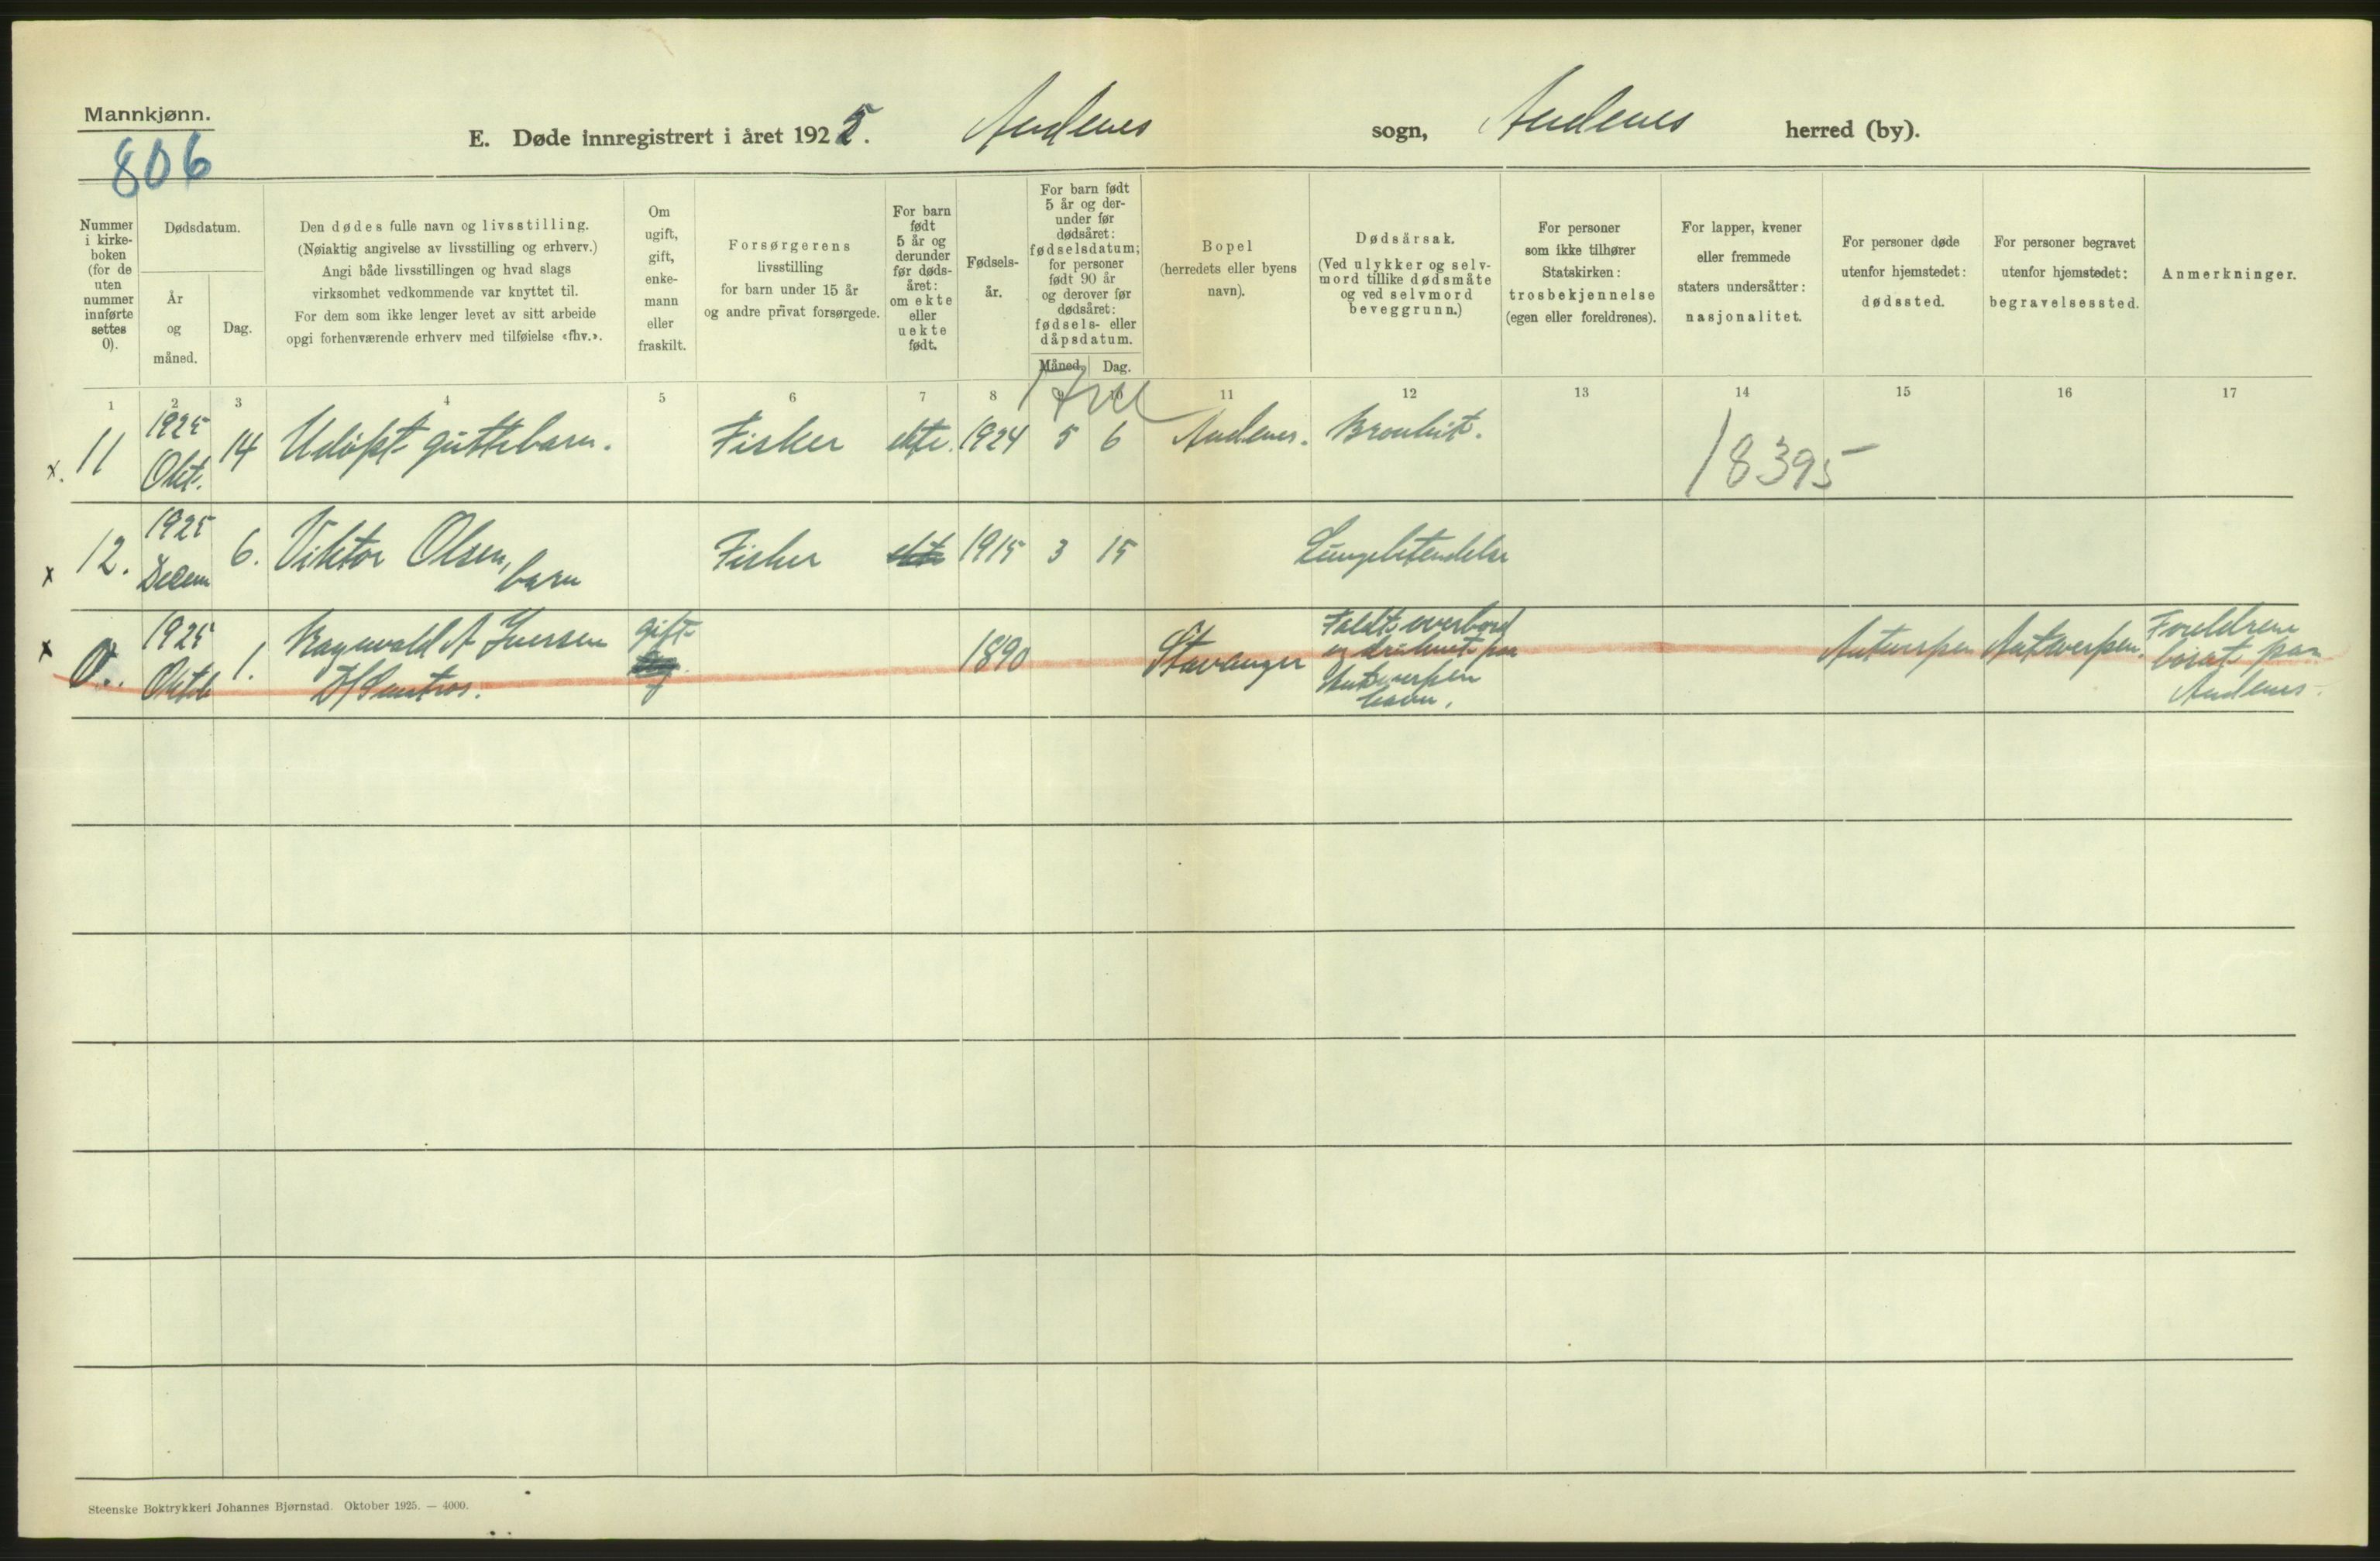 Mannkjønn.
806
E. Døde innregistrert i året 1925. Andenes sogn, Andenes herred (by).
Nummer i kirke-boken (for de uten nummer innførte settes 0).
Dødsdatum.
År og måned.
Dag.
Den dødes fulle navn og livsstilling.
(Nøiaktig angivelse av livsstilling og erhverv.)
Angi både livsstillingen og hvad slags
virksomhet vedkommende var knyttet til.
For dem som ikke lenger levet av sitt arbeide
opgi forhenværende erhverv med tilføielse «fhv.».
Om ugift, gift, enke-mann eller fraskilt.
Forsørgerens
livsstilling
for barn under 15 år
og andre privat forsørgede.
For barn født 5 år og derunder før døds-året: om ekte eller uekte født.
Fødsels-år.
For barn født 5 år og der-under før dødsåret: fødselsdatum; for personer født 90 år og derover før dødsåret: fødsels- eller dåpsdatum.
Måned. Dag.
Bopel
(herredets eller byens
navn).
Dødsårsak.
(Ved ulykker og selv-
mord tillike dødsmåte
og ved selvmord
beveggrunn.)
For personer
som ikke tilhører
Statskirken:
trosbekjennelse
(egen eller foreldrenes).
For lapper, kvener
eller fremmede
staters undersåtter:
nasjonalitet.
For personer døde
utenfor hjemstedet:
dødssted.
For personer begravet
utenfor hjemstedet:
begravelsessted.
Anmerkninger.
1 2 3 4 5 6 7 8 9 10 11 12 13 14 15 16 17
x. 11 1925 Okt. 14 Udöpt guttebarn. Fisker ekte. 1924 5 6 Andenes. Bronkit.
18395
x 12. 1925 Decem 6. Viktor Olsen, barn Fisker 1915 3 15 Lungebetendelse
x 0. 1925 Oktb 1. Ragnvald A Iversen gift 1890 Stavanger Faldt overbord
og druknet paa
Antwerpen
havn.
Antwerpen Antwerpen. Foreldrene
bosat paa
Andenes.
Steenske Boktrykkeri Johannes Bjørnstad. Oktober 1925. — 4000.